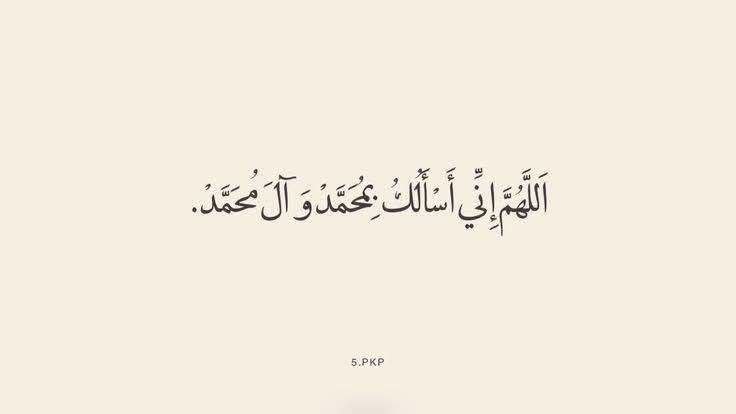 اَللَّهُمَّ إِنِّي أَسْأَلُكُ بِمُحَمَّدْ وَ آلَ مُحَمَّدْ.
5.PKP